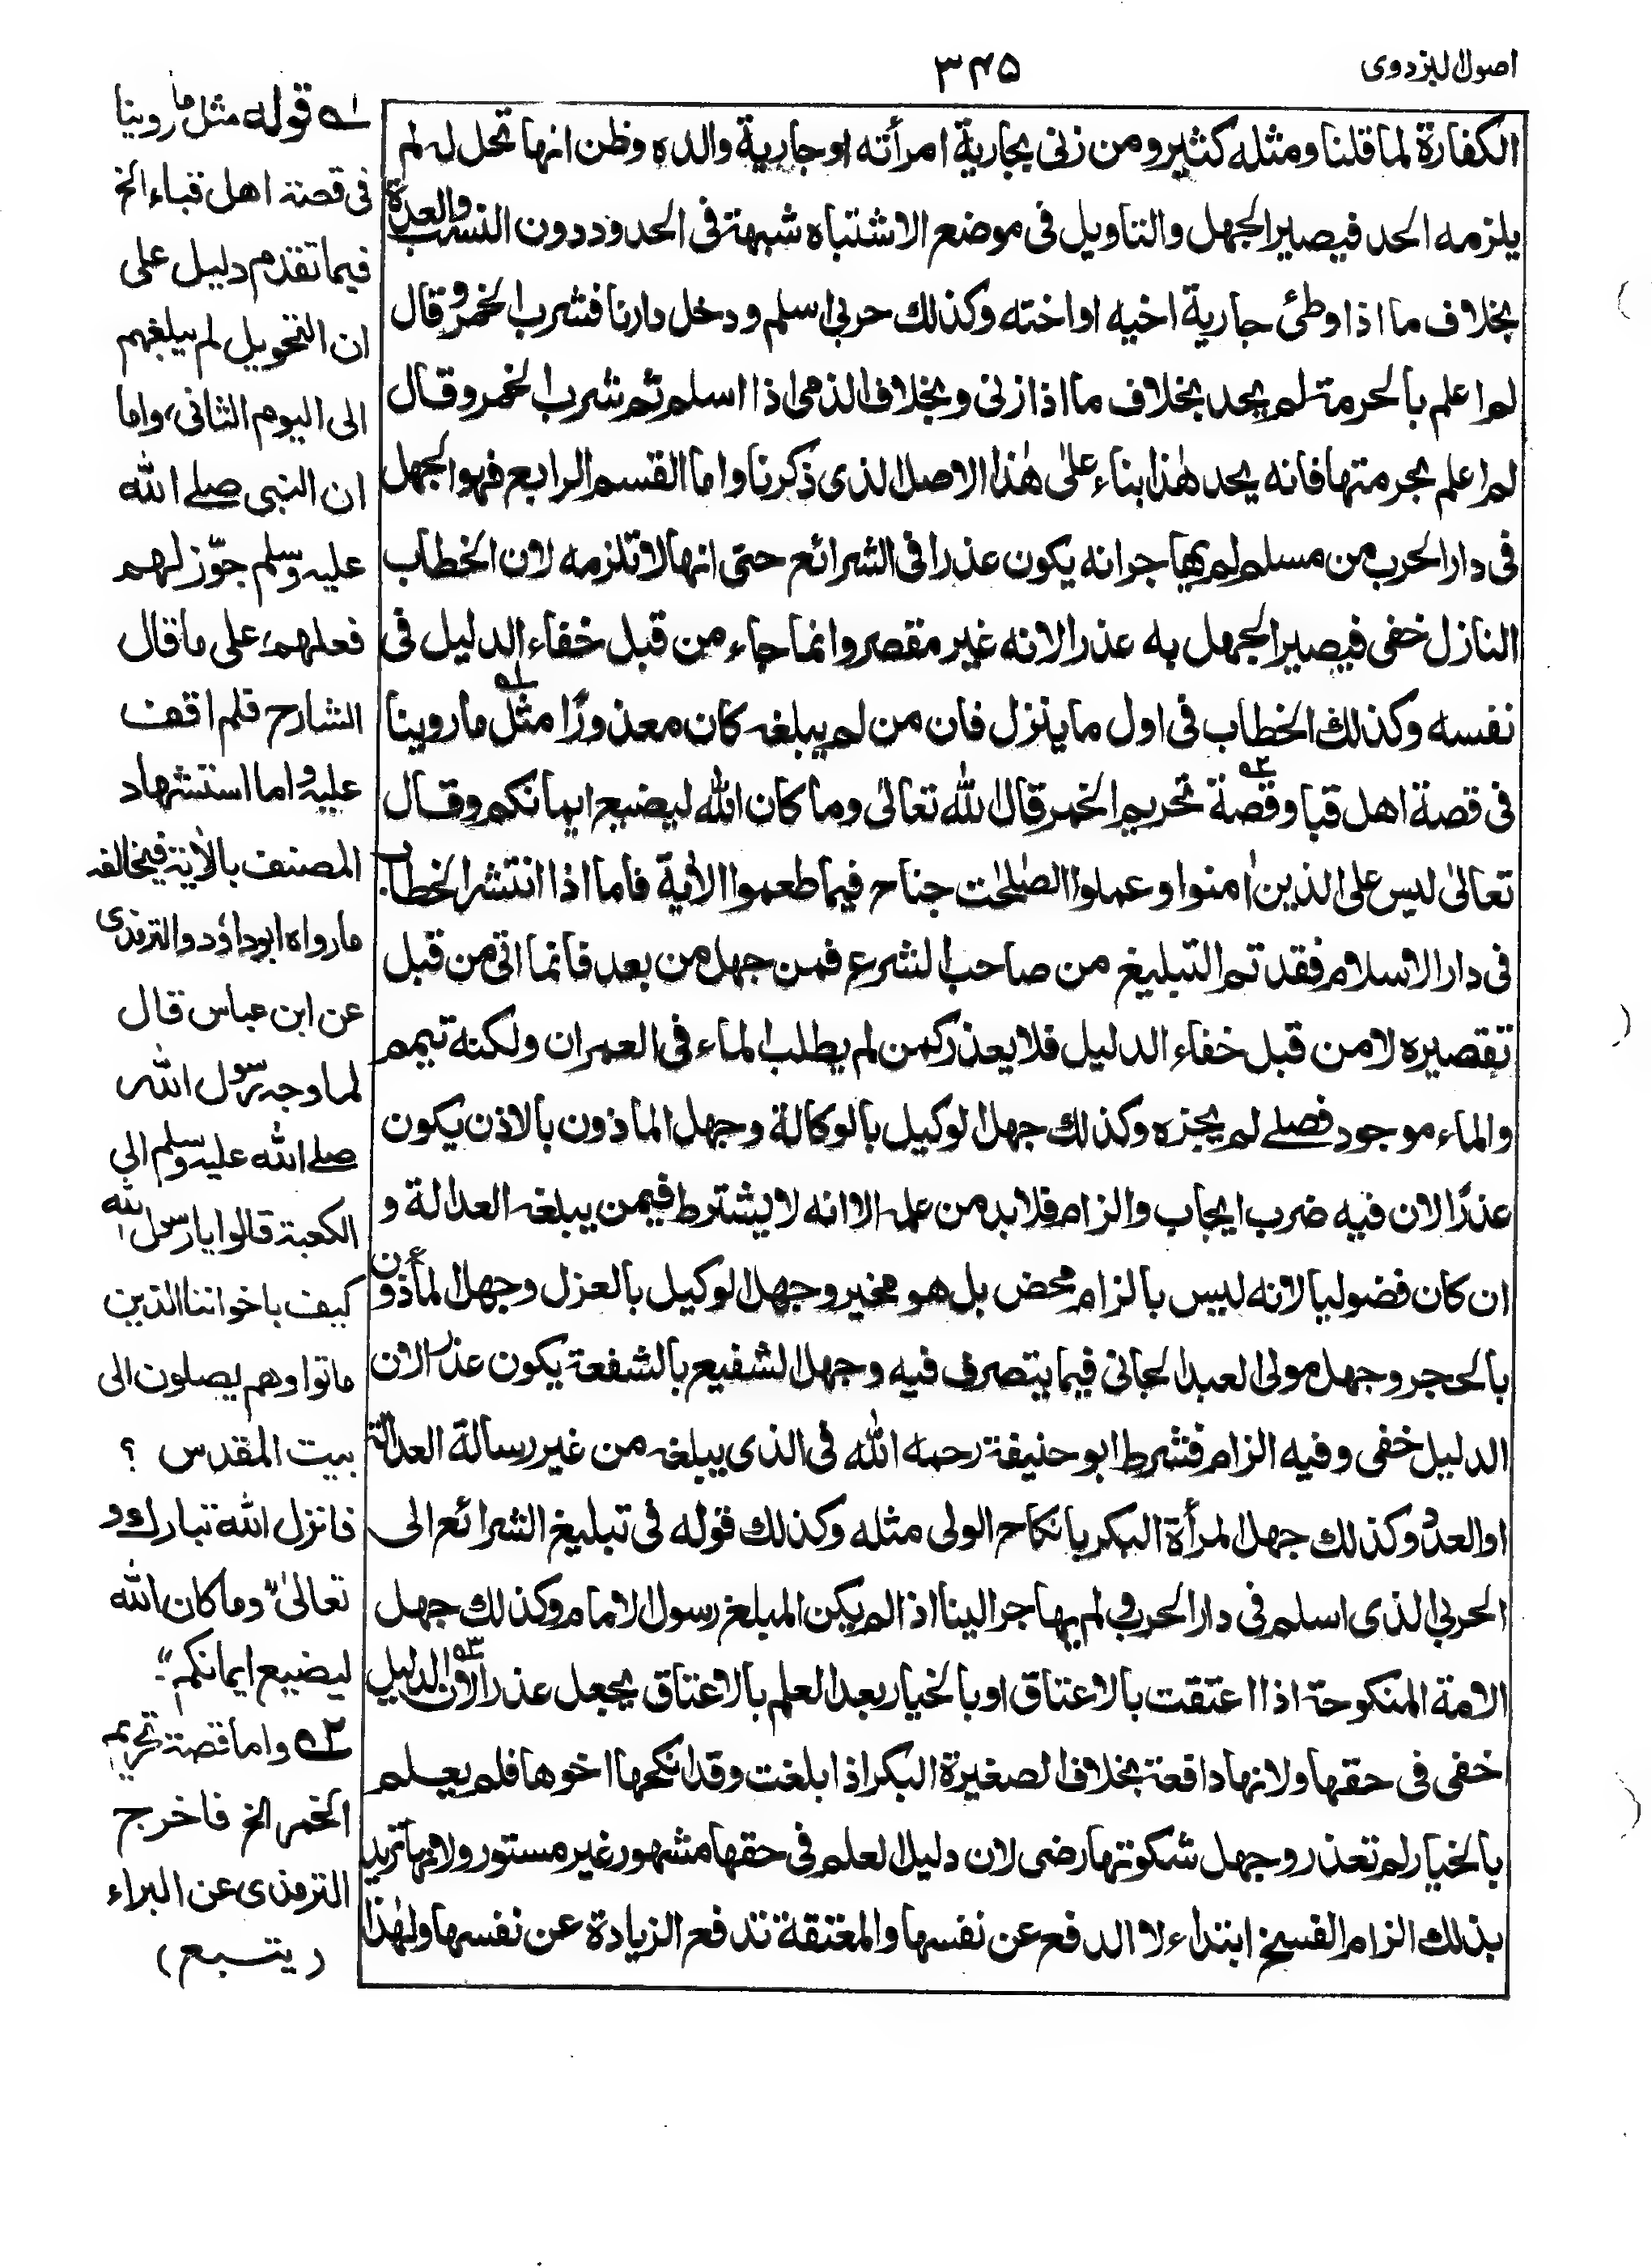 اصول البزدوى
٣٤٥
الكفارة لما قلنا ومثله كثير ومن زنى بجارية امرأته او جارية والده وظن انها تحل له لم
يلزمه الحد فيصير الجهل والتاويل فى موضع الاشتباه شبهة فى الحدود دون النسب والعدة
بخلاف ما اذا وطئ جارية اخيه او اخته وكذلك حربى اسلم ودخل دارنا فشرب الخمر وقال
لم اعلم بالحرمة لم يحد بخلاف ما اذا زنى وبخلاف الذمى اذا اسلم ثم شرب الخمر وقال
لم اعلم بحرمتها فانه يحد هٰذا بناء علىٰ هٰذا الاصل الذى ذكرنا واما القسم الرابع فهو الجهل
فى دار الحرب من مسلم لم يهاجر انه يكون عذرا فى الشرائع حتى انها لا تلزمه لان الخطاب
النازل خفى فيصير الجهل به عذرا لانه غير مقصر وانما جاء من قبل خفاء الدليل فى
نفسه وكذلك الخطاب فى اول ما ينزل فان من لم يبلغه كان معذورًا مثل ١ـه ما روينا
فى قصة اهل قبا وقصة ٢ـه تحريم الخمر قال الله تعالىٰ وما كان الله ليضيع ايمانكم وقال
تعالىٰ ليس على الذين اٰمنوا وعملوا الصٰلحٰت جناح فيما طعموا الاٰية فاما اذا انتشر الخطاب
فى دار الاسلام فقد تم التبليغ من صاحب الشرع فمن جهل من بعد فانما اتى من قبل
تقصيره لا من قبل خفاء الدليل فلا يعذر كمن لم يطلب الماء فى العمران ولكنه تيمم
والماء موجود فصلے لم يجزه وكذلك جهل الوكيل بالوكالة وجهل الماذون بالاذن يكون
عذرًا لان فيه ضرب ايجاب والزام فلا بد من علمه الا انه لا يشترط فيمن يبلغه العدالة و
ان كان فضوليا لانه ليس بالزام محض بل هو مخير وجهل الوكيل بالعزل وجهل المأذون
بالحجر وجهل مولى العبد الجانى فيما يتصرف فيه وجهل الشفيع بالشفعة يكون عذرا لان
الدليل خفى وفيه الزام فشرط ابو حنيفة رحمه الله فى الذى يبلغه من غير رسالة العدالة
او العدد وكذلك جهل المرأة البكر بانكاح الولى مثله وكذلك قوله فى تبليغ الشرائع الى
الحربى الذى اسلم فى دار الحرب ولم يهاجر الينا اذا لم يكن المبلغ رسول الامام وكذلك جهل
الامة المنكوحة اذا اعتقت بالاعتاق او بالخيار بعد العلم بالاعتاق يجعل عذرا ٣ـه لان الدليل
خفى فى حقها ولانها دافعة بخلاف الصغيرة البكر اذا بلغت وقد انكحها اخوها فلم يعلم
بالخيار لم تعذر وجهل سكوتها رضى لان دليل العلم فى حقها مشهور غير مستور ولانها تريد
بذلك الزام الفسخ ابتداء لا الدفع عن نفسها والمعتقة تدفع الزيادة عن نفسها ولهٰذا
١ـه قوله مثل ما روينا
فى قصة اهل قباء الخ
فيما تقدم دليل على
ان التحويل لم يبلغهم
الى اليوم الثانى، واما
ان النبى صلے الله
عليه وسلم جوّز لهم
فعلهم على ما قال
الشارح فلم اقف
عليه واما استشهاد
المصنف بالاٰية فيخالفه
ما رواه ابو داؤد والترمذى
عن ابن عباس قال
لما وجه رسول الله
صلے الله عليه وسلم الى
الكعبة قالوا يا رسول الله
كيف باخواننا الذين
ماتوا وهم يصلون الى
بيت المقدس ؟
فانزل الله تبارك و
تعالىٰ "وما كان الله
ليضيع ايمانكم"۔
٢ـه واما قصة تحريم
الخمر الخ فاخرج
الترمذى عن البراء
(يتبع)